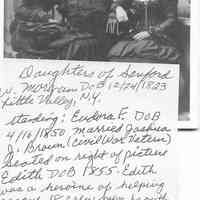 Daughters of Sanford
N. Morgan DoB 12/24/1823
Little Valley, N.Y.
standing: Eudora F. DoB
4/16/1850 married Joshua
J. Brown (Civil War Veteran)
Seated on right of picture
Edith DoB 1855. Edith
was a heroine of helping